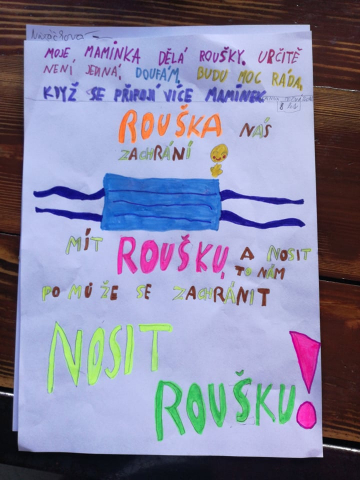 MOJE MAMINKA DĚLÁ ROUŠKY. URČITĚ
NENÍ JEDINÁ. DOUFÁM, BUDU MOC RÁDA,
KDYŽ SE PŘIPOJÍ VÍCE MAMINEK.
ROUŠKA NÁS
ZACHRÁNÍ
MÍT ROUŠKU, A NOSIT
TO NÁM
POMŮŽE SE ZACHRÁNIT
NOSIT
ROUŠKU!